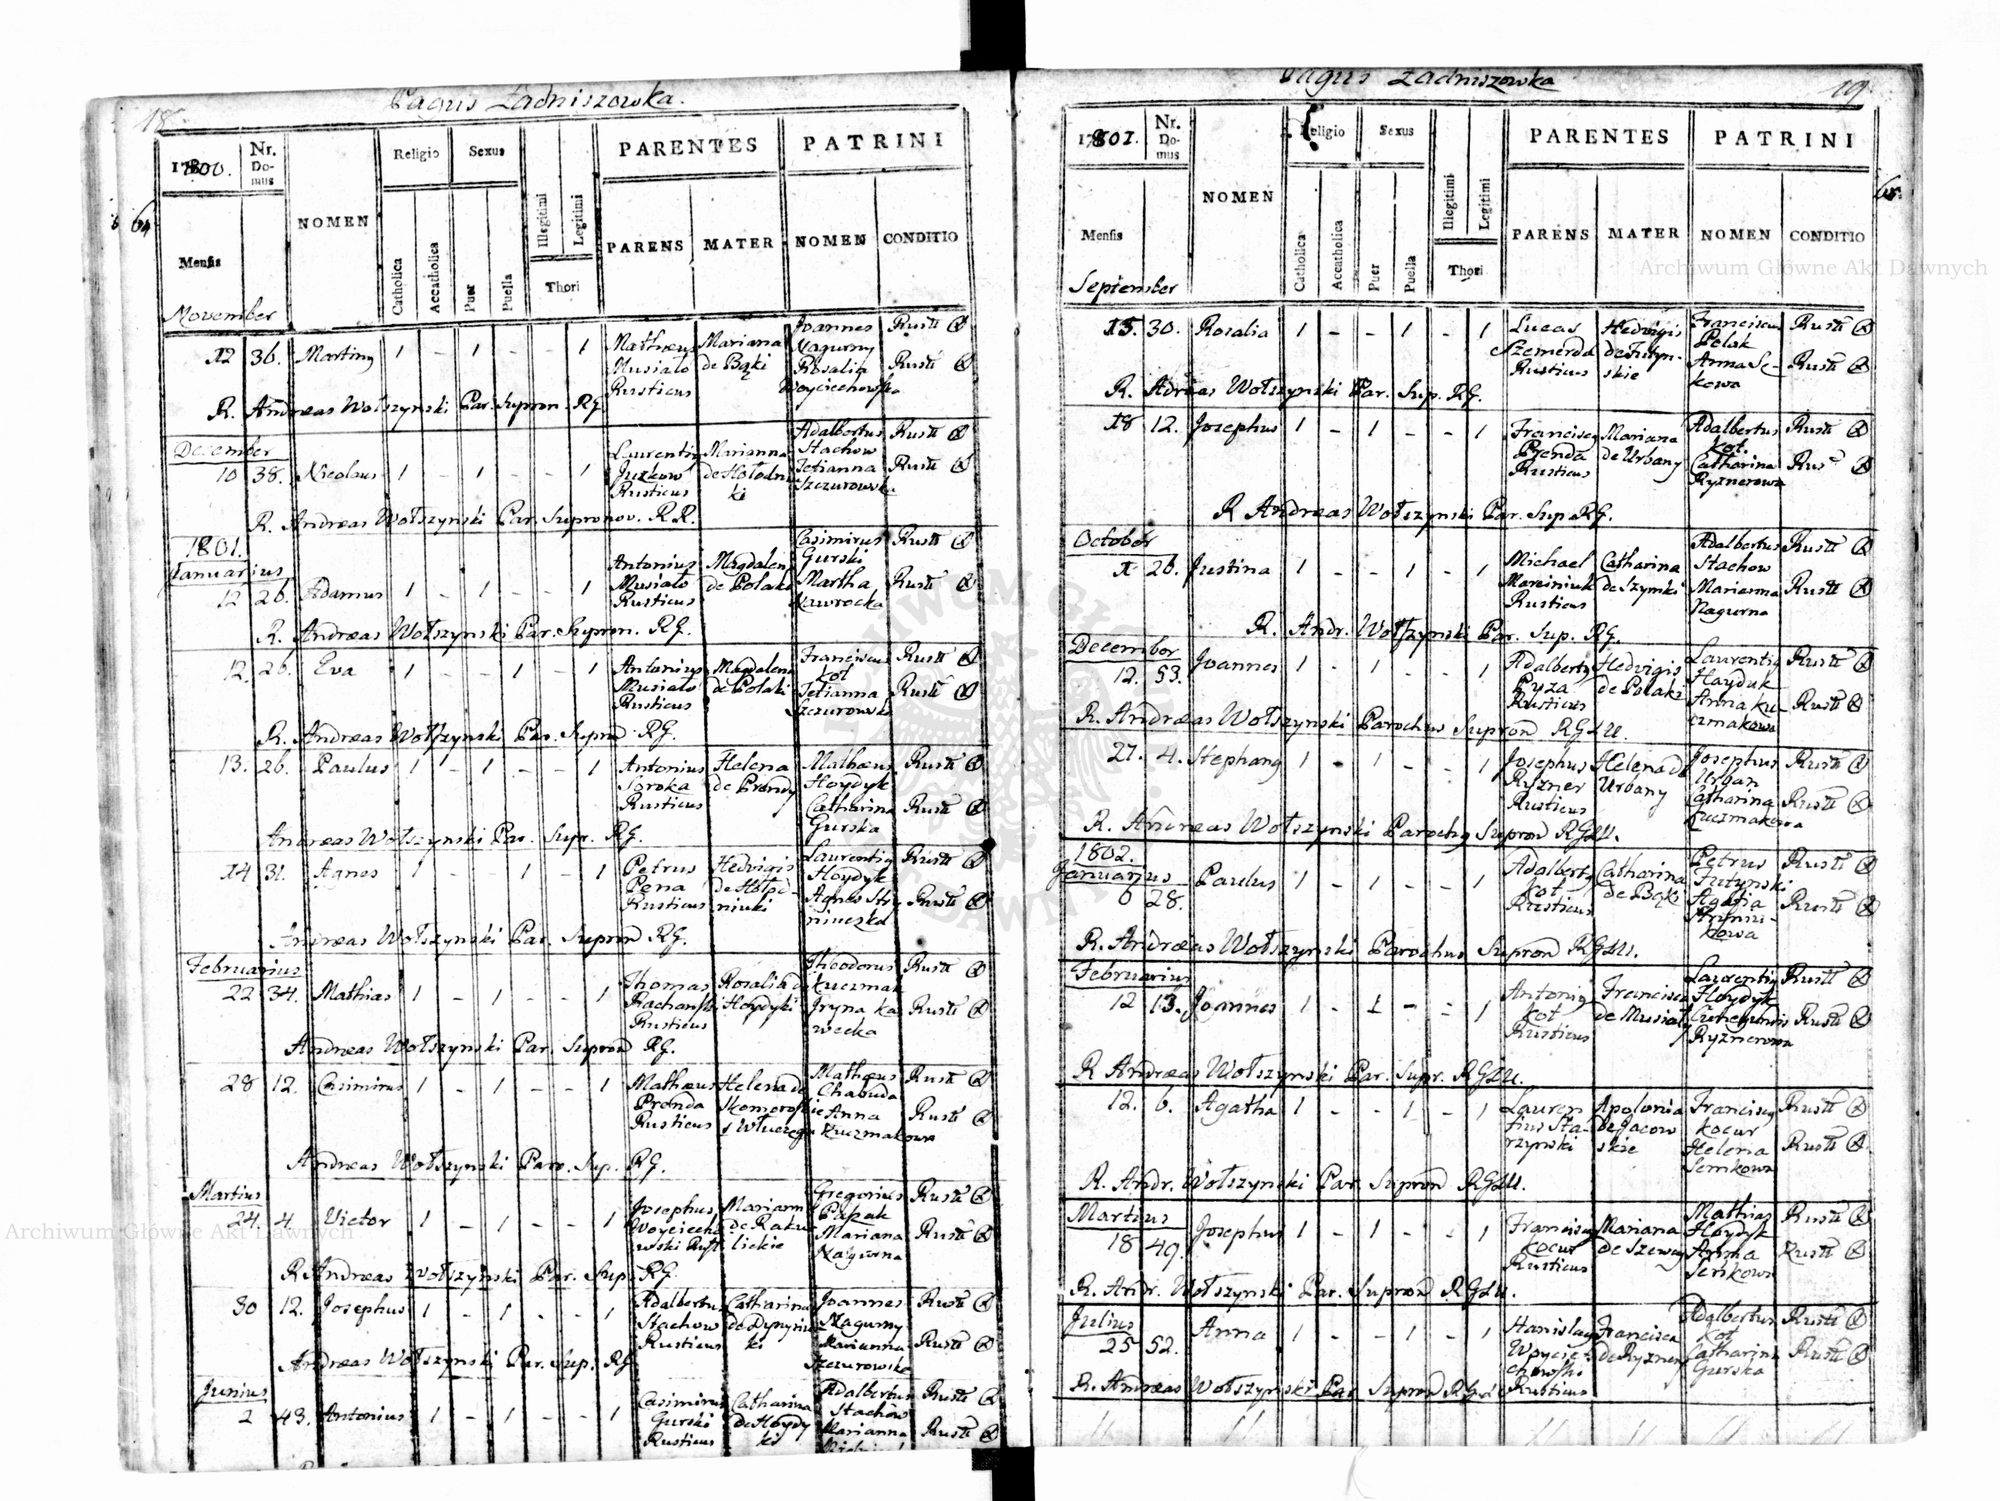 18.
Pagus Zadniszowska.
1800.
Nr. Domus
NOMEN
Religio
Sexus
PARENTES
PATRINI
Mensis
Catholica
Accatholica
Puer
Puella
Illegitimi
Legitimi
Thori
PARENS
MATER
NOMEN
CONDITIO
64
November
12 36. Martiny 1 - 1 - - 1 Mathæus Musiało Rusticus Mariana de Bąki Joannes Nagurny Rusti
Rosalia Woyciechowska Rusti
R. Andræas Wołszynski Par. Supron. RG
December
10 38. Nicolaus 1 - 1 - - 1 Laurentiy Juzkow Rusticus Marianna de Hołodniki Adalbertus Stachow Rusti
Tetianna Szczurowska Rusti
R. Andræas Wołszynski Par. Supronov. R.R.
1801.
Januarius
12 26. Adamus 1 - 1 - - 1 Antonius Musiało Rusticus Magdalena de Polaki Casimirus Gurski Rusti
Martha Nawrocka Rusti
R. Andræas Wołszynski Par. Supron. RG.
12. 26. Eva 1 - - 1 - 1 Antonius Musiało Rusticus Magdalena de Polaki Franciscus Kot Rusti
Tetianna Szczurowska Rusti
R. Andræas Wołszynski Par. Supron RG.
13. 26. Paulus 1 - 1 - - 1 Antonius Soroka Rusticus Helena de Prondy Mathæus Hoydyk Rusti
Catharina Gurska Rusti
Andræas Wołszynski Par. Supr. RG.
14 31. Agnes 1 - - 1 - 1 Petrus Pena Rusticus Hedvigis Laurentiy Hoydyk Rusti
Rusti
Andræas Wołszynski Par. Supron RG.
Februarius
22 34. Mathias 1 - 1 - - 1 Thomas Rusticus Rosalia de Hoydyki Theodorus Kuczmak Rusti
Jryna Rusti
Andræas Wołszynski Par. Supron RG.
28 12. Casimirus 1 - 1 - - 1 Mathæus Pronda Rusticus Helena de Mathæus Chabuda Rusti
Anna Kuczmakowa Rusti
Andræas Wołszynski Par. Sup. RG.
Martius
24. 4. Victor 1 - 1 - - 1 Josephus Woyciechowski Rust Mariann de Rakulickie Gregorius Papak Rusti
Mariana Nagurna Rusti
R. Andræas Wołszynski Par. Sup. RG.
30 12. Josephus 1 - 1 - - 1 Adalbertus Stachow Rusticus Catharina de Dynyniuki Joannes Nagurny Rusti
Marianna Szczurowska Rusti
Andræas Wołszynski Par. Sup. RG
Junius
2 43. Antonius 1 - 1 - - 1 Casimirus Gurski Rusticus Catharina de Hoydyki Adalbertus Stachow Rusti
Marianna Rusti
Pagus Zadniszowska
19
1801.
Nr. Domus
NOMEN
Religio
Sexus
PARENTES
PATRINI
Mensis
Catholica
Accatholica
Puer
Puella
Illegitimi
Legitimi
Thori
PARENS
MATER
NOMEN
CONDITIO
65.
September
15. 30. Rosalia 1 - - 1 - 1 Lucas Szemerda Rusticus Hedvigis de Futynskie Franciscus Polak Rusti
Anna Senkowa Rusti
R. Adræas Wołszynski Par. Sup. RG.
18 12. Josephus 1 - 1 - - 1 Franciscy Pronda Rusticus Mariana de Urbany Adalbertus Kot. Rusti
Catharina Ryznerowa Rus
R Andræas Wołszynski Par. Sup RG.
October
1 26. Justina 1 - - 1 - 1 Michael Marciniuk Rusticus Catharina de Szymki Adalbertus Stachow Rusti
Marianna Nagurna Rusti
R. Andr. Wołszynski Par. Sup. RG.
December
12. 53. Joannes 1 - 1 - - 1 Adalberty Pyza Rusticus Hedvigis de Polaki Laurentiy Hayduk Rusti
Anna Kuczmakowa Rusti
R. Andræas Wołszynski Parochus Supron RGLU.
21. 4. Stephany 1 - 1 - - 1 Josephus Ryzner Rusticus Helena de Urbany Josephus Urban Rusti
Catharina Kuczmakowa Rusti
R. Andreas Wołszynski Parochy Supron RGLU.
1802.
Januarius
6 28. Paulus 1 - 1 - - 1 Adalberty Kot Rusticus Catharina de Bąki Petrus Futynski Rusti
Agafia Rusti
R. Andræas Wołszynski Parochus Supron RGLU.
Februarius
12 13. Joannes 1 - 1 - - 1 Antoniy Kot Rusticus Francisca de Musiały Laurentiy Hoydyk Rusti
Cunegundis Ryznerowa Rusti
R Andræas Wołszynski Par. Supr. RGLU.
12. 6. Agatha 1 - - 1 - 1 Laurentius Starzynski Apolonia de Jacowskie Franciscy Kocur Rusti
Helena Semkowa Rusti
R. Andr. Wołszynski Par. Supron RGLU.
Martius
18 49. Josephus 1 - 1 - - 1 Franciscy Kocur Rusticus Mariana de Szewcy Mathias Hoydyk Rusti
Anna Senkowa Rusti
R. Andr. Wołszynski Par. Supron RGLU.
Julius
25 52. Anna 1 - - 1 - 1 Stanislay Woyciechowski Rusticus Francisca de Ryznery Adalbertus Kot Rusti
Catharina Gurska Rusti
R. Andræas Wołszynski Par Supron
Archiwum Główne Akt Dawnych
Archiwum Główne Akt Dawnych